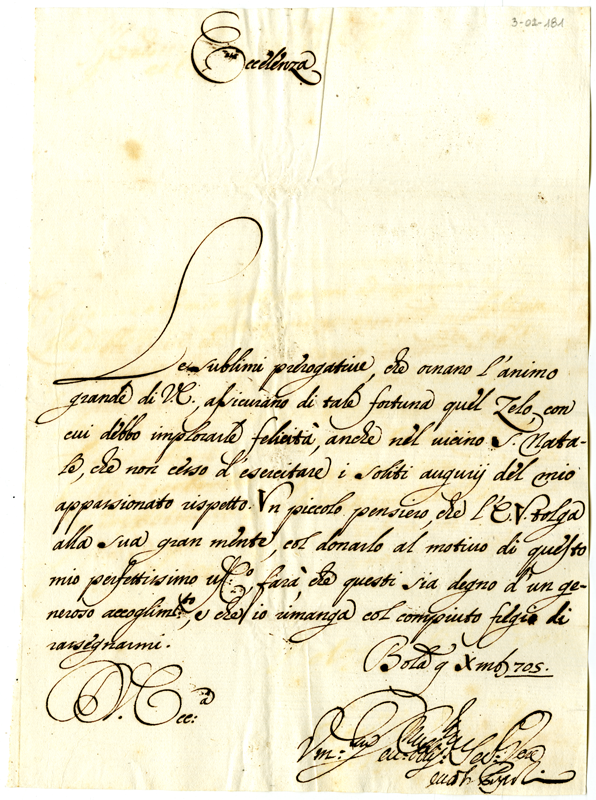 3-02-181
Eccelenza
Le sublimi prerogative, che ornano l'animo
grande di V.E., assicurano di tale fortuna quel Zelo, con
cui debbo implorarle felicità, anche nel vicino S. Nata-
le, che non cesso d'esercitare i soliti augurij del mio
appassionato rispetto. Un piccolo pensiero, che l'E.V. tolga
alla sua gran mente, col donarlo al motivo di questo
mio perfettissimo uff:o farà, che questi sia degno d'un ge-
neroso accoglim:to, e che io rimanga col compiuto fregio di
rassegnarmi.
Bol:a 9 Xmb 705.
V. Ecc:a
Vm:mo